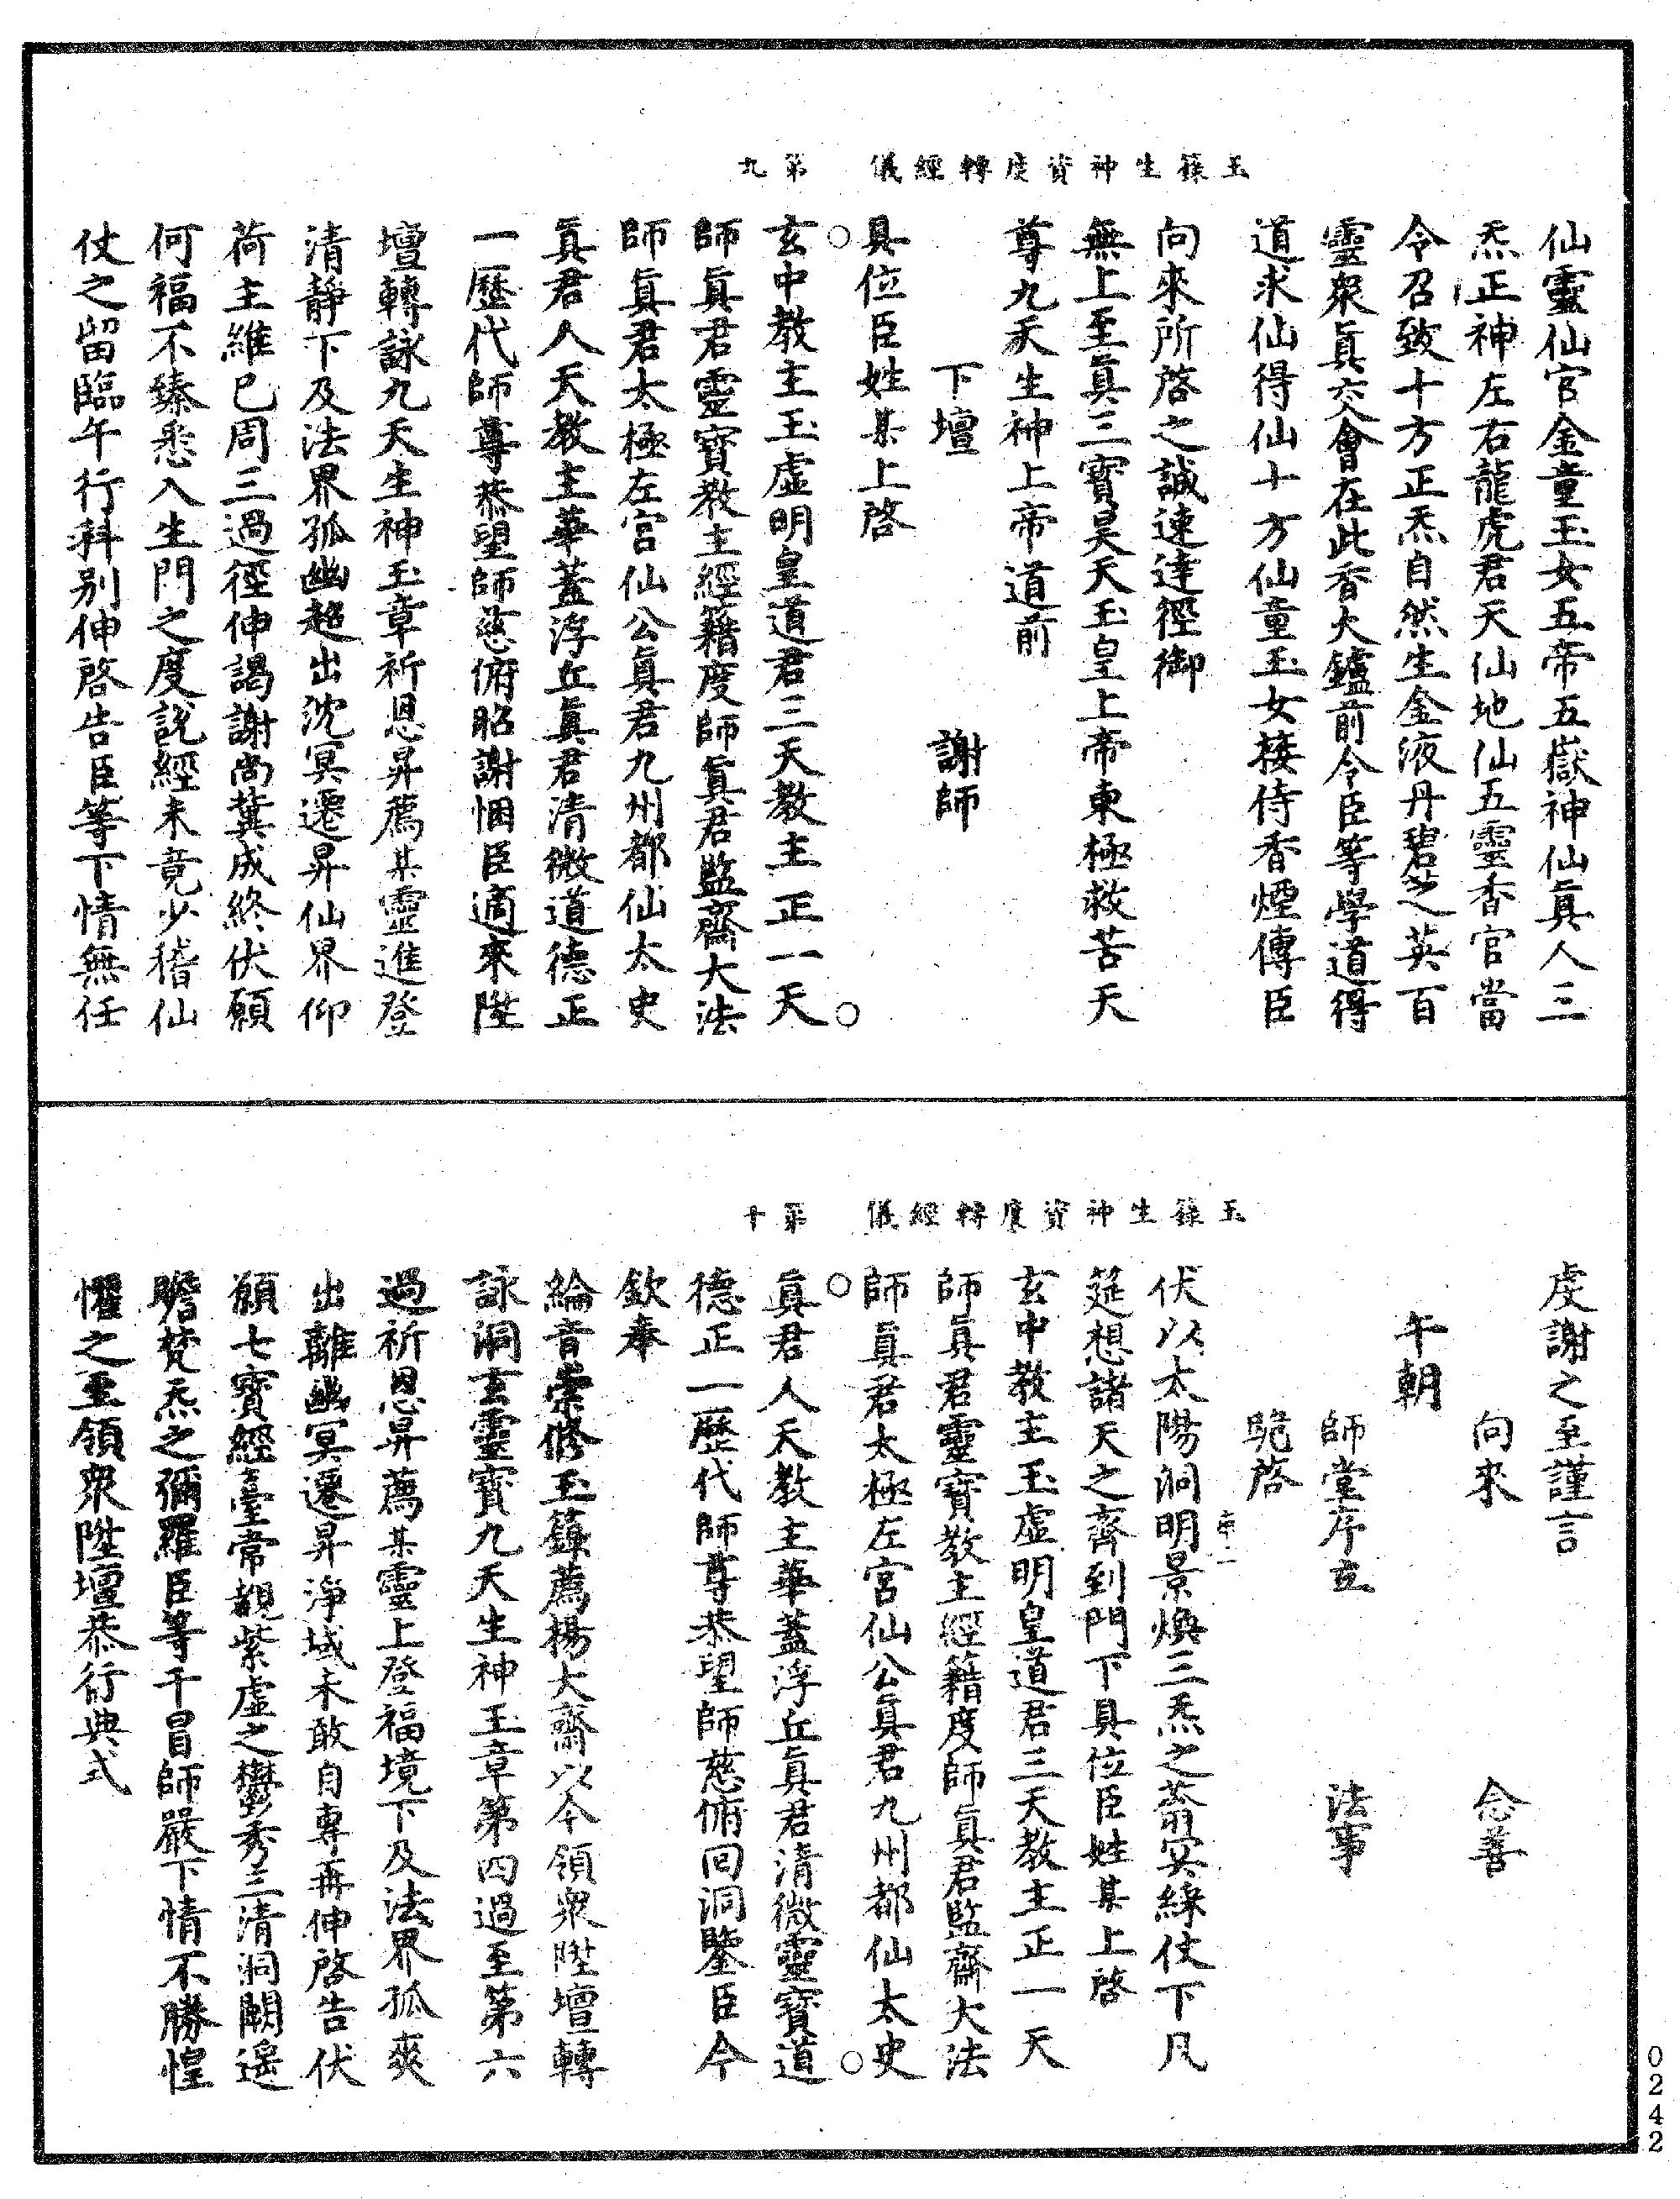 玉籙生神資度轉經儀　第九
仙靈仙官金童玉女五帝五嶽神仙眞人三
炁正神左右龍虎君天仙地仙五靈香官當
令召致十方正炁自然生金液丹碧芝英百
靈衆眞交會在此香火鑪前令臣等學道得
道求仙得仙十方仙童玉女接侍香煙傳臣
向來所啓之誠速達徑御
無上至眞三寶昊天玉皇上帝東極救苦天
尊九天生神上帝道前
下壇　謝師
具位臣姓某上啓
玄中教主玉虛明皇道君三天教主正一天
師眞君靈寶教主經籍度師眞君監齋大法
師眞君太極左宮仙公眞君九州都仙太史
眞君人天教主華蓋浮丘眞君清微道德正
一歷代師尊恭望師慈俯昭謝悃臣適來陞
壇轉詠九天生神玉章祈恩昇薦某靈進登
清靜下及法界孤幽超出沈冥遷昇仙界仰
荷主維已周三過徑伸謁謝尚冀成終伏願
何福不臻悉入生門之度說經未竟少稽仙
仗之留臨午行科别伸啓告臣等下情無任
玉籙生神資度轉經儀　第十
虔謝之至謹言
向來　念善
午朝
師堂序立　法事
跪啓
伏以太陽洞明景煥三炁之蓊冥綠仗下凡
筵想諸天之齊到門下具位臣姓某上啓
玄中教主玉虛明皇道君三天教主正一天
師眞君靈寶教主經籍度師眞君監齋大法
師眞君太極左宮仙公眞君九州都仙太史
眞君人天教主華蓋浮丘眞君清微靈寶道
德正一歷代師尊恭望師慈俯回洞鑒臣今
欽奉
綸音崇修玉籙薦揚大齋以今領衆陞壇轉
詠洞玄靈寶九天生神玉章第四過至第六
過祈恩昇薦某靈上登福境下及法界孤爽
出離幽冥遷昇淨域未敢自專再伸啓告伏
願七寶經臺常覩紫虛之鬱秀三清洞闕遙
瞻梵炁之彌羅臣等干冒師嚴下情不勝惶
懼之至領衆陞壇恭行典式
0242